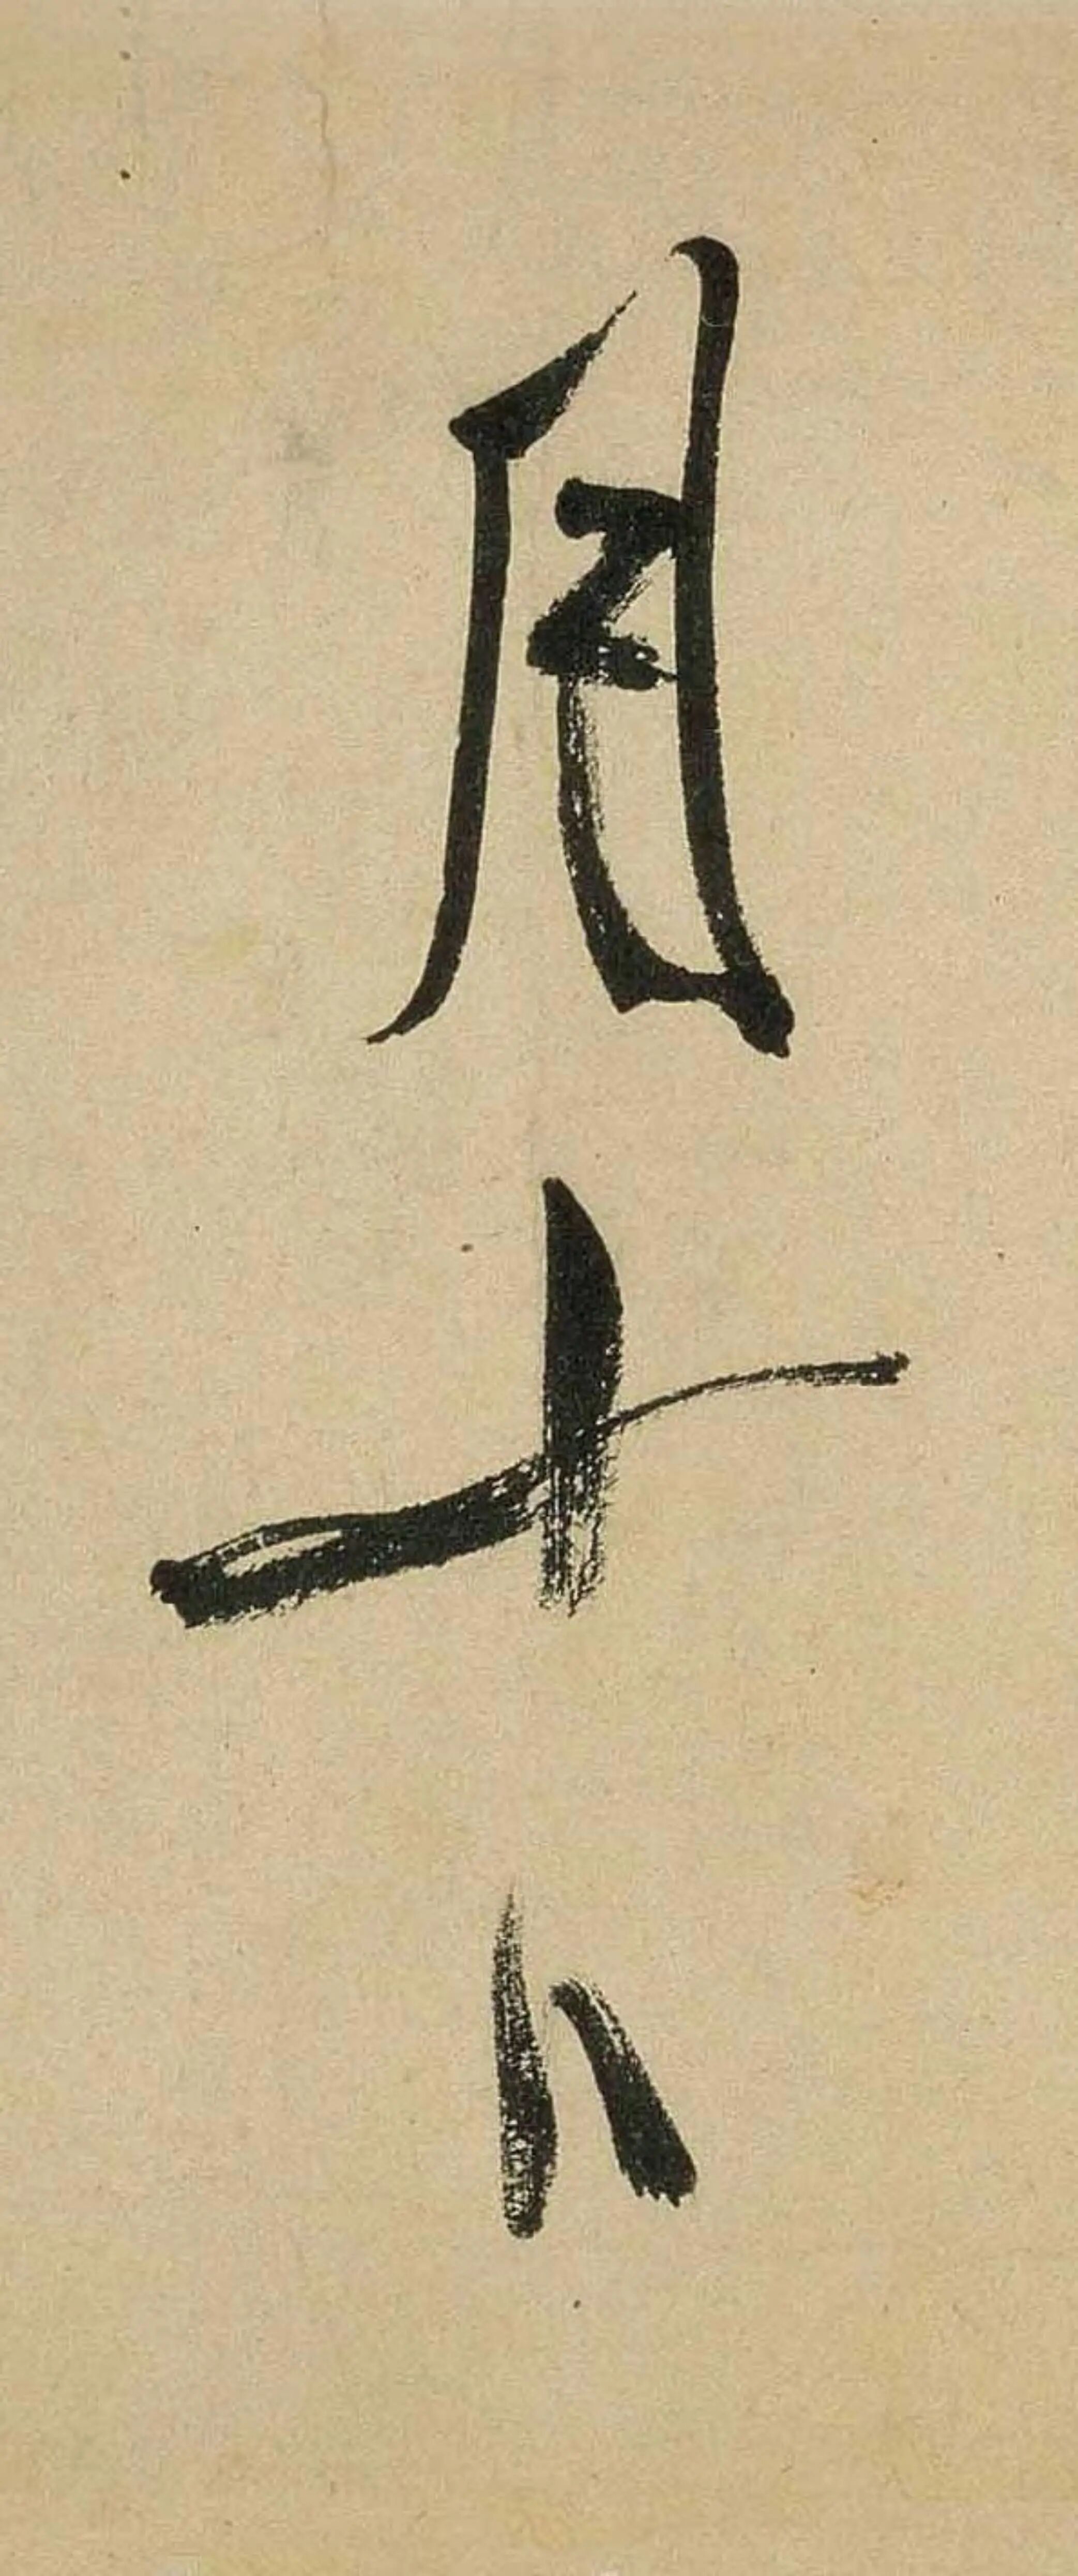 月十八